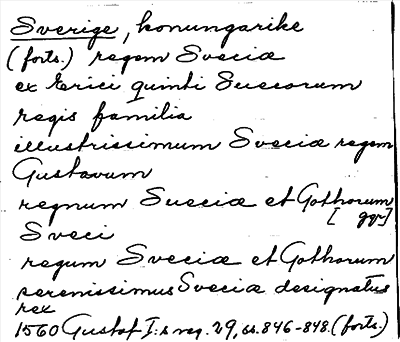 Sverige, konungarike
(forts.) regem Sveciæ
ex Erici quinti Suecorum
regis familia
illustrissimum Sveciæ regem
Gustavum
regnum Sueciæ et Gothorum
[ ggr]
Sveci
regum Sveciæ et Gothorum
serenissimus Sveciæ designatus
rex
1560 Gustaf I:s reg. 29, ss. 846-848. (forts.)